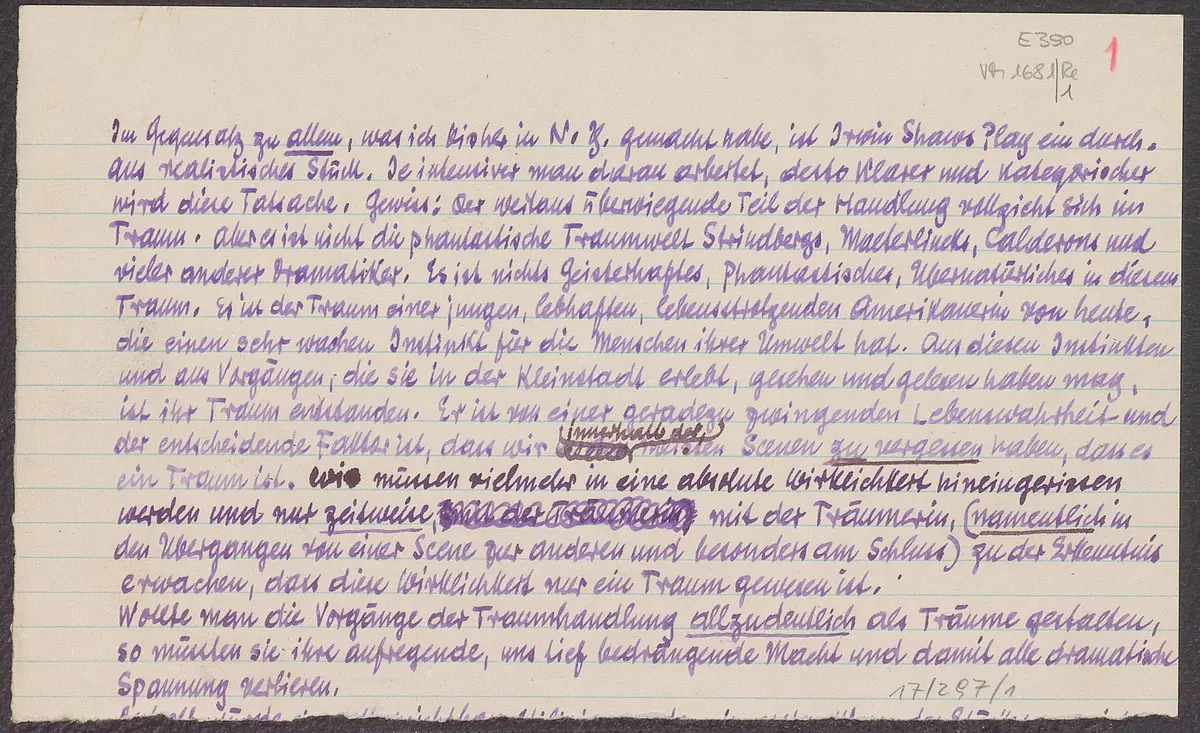 E 350
1
VM 1681/Re
1
Im Gegensatz zu allem, was ich bisher in N. Y. gemacht habe, ist Irwin Shaws Play ein durch-
aus realistisches Stück. Je intensiver man daran arbeitet, desto klarer und kategorischer
wird diese Tatsache. Gewiss: Der weitaus überwiegende Teil der Handlung vollzieht sich im
Traum. Aber es ist nicht die phantastische Traumwelt Strindbergs, Maeterlincks, Calderons und
vieler anderer Dramatiker. Es ist nichts Geisterhaftes, Phantastisches, Übernatürliches in diesem
Traum. Es ist der Traum einer jungen, lebhaften, lebensstrotzenden Amerikanerin von heute,
die einen sehr wachen Instinkt für die Menschen ihrer Umwelt hat. Aus diesen Instinkten
und aus Vorgängen, die sie in der Kleinstadt erlebt, gesehen und gelesen haben mag,
ist ihr Traum entstanden. Er ist von einer geradezu zwingenden Lebenswahrheit und
der entscheidende Faktor ist, dass wir innerhalb der meisten Scenen zu vergessen haben, dass es
ein Traum ist. Wir müssen vielmehr in eine absolute Wirklichkeit hineingerissen
werden und nur zeitweise, mit der Träumerin, (namentlich in
den Übergängen von einer Scene zur anderen und besonders am Schluss) zu der Erkenntnis
erwachen, dass diese Wirklichkeit nur ein Traum gewesen ist.
Wollte man die Vorgänge der Traumhandlung allzudeutlich als Träume gestalten,
so müssten sie ihre aufregende, uns tief bedrängende Macht und damit alle dramatische
Spannung verlieren.
17/297/1